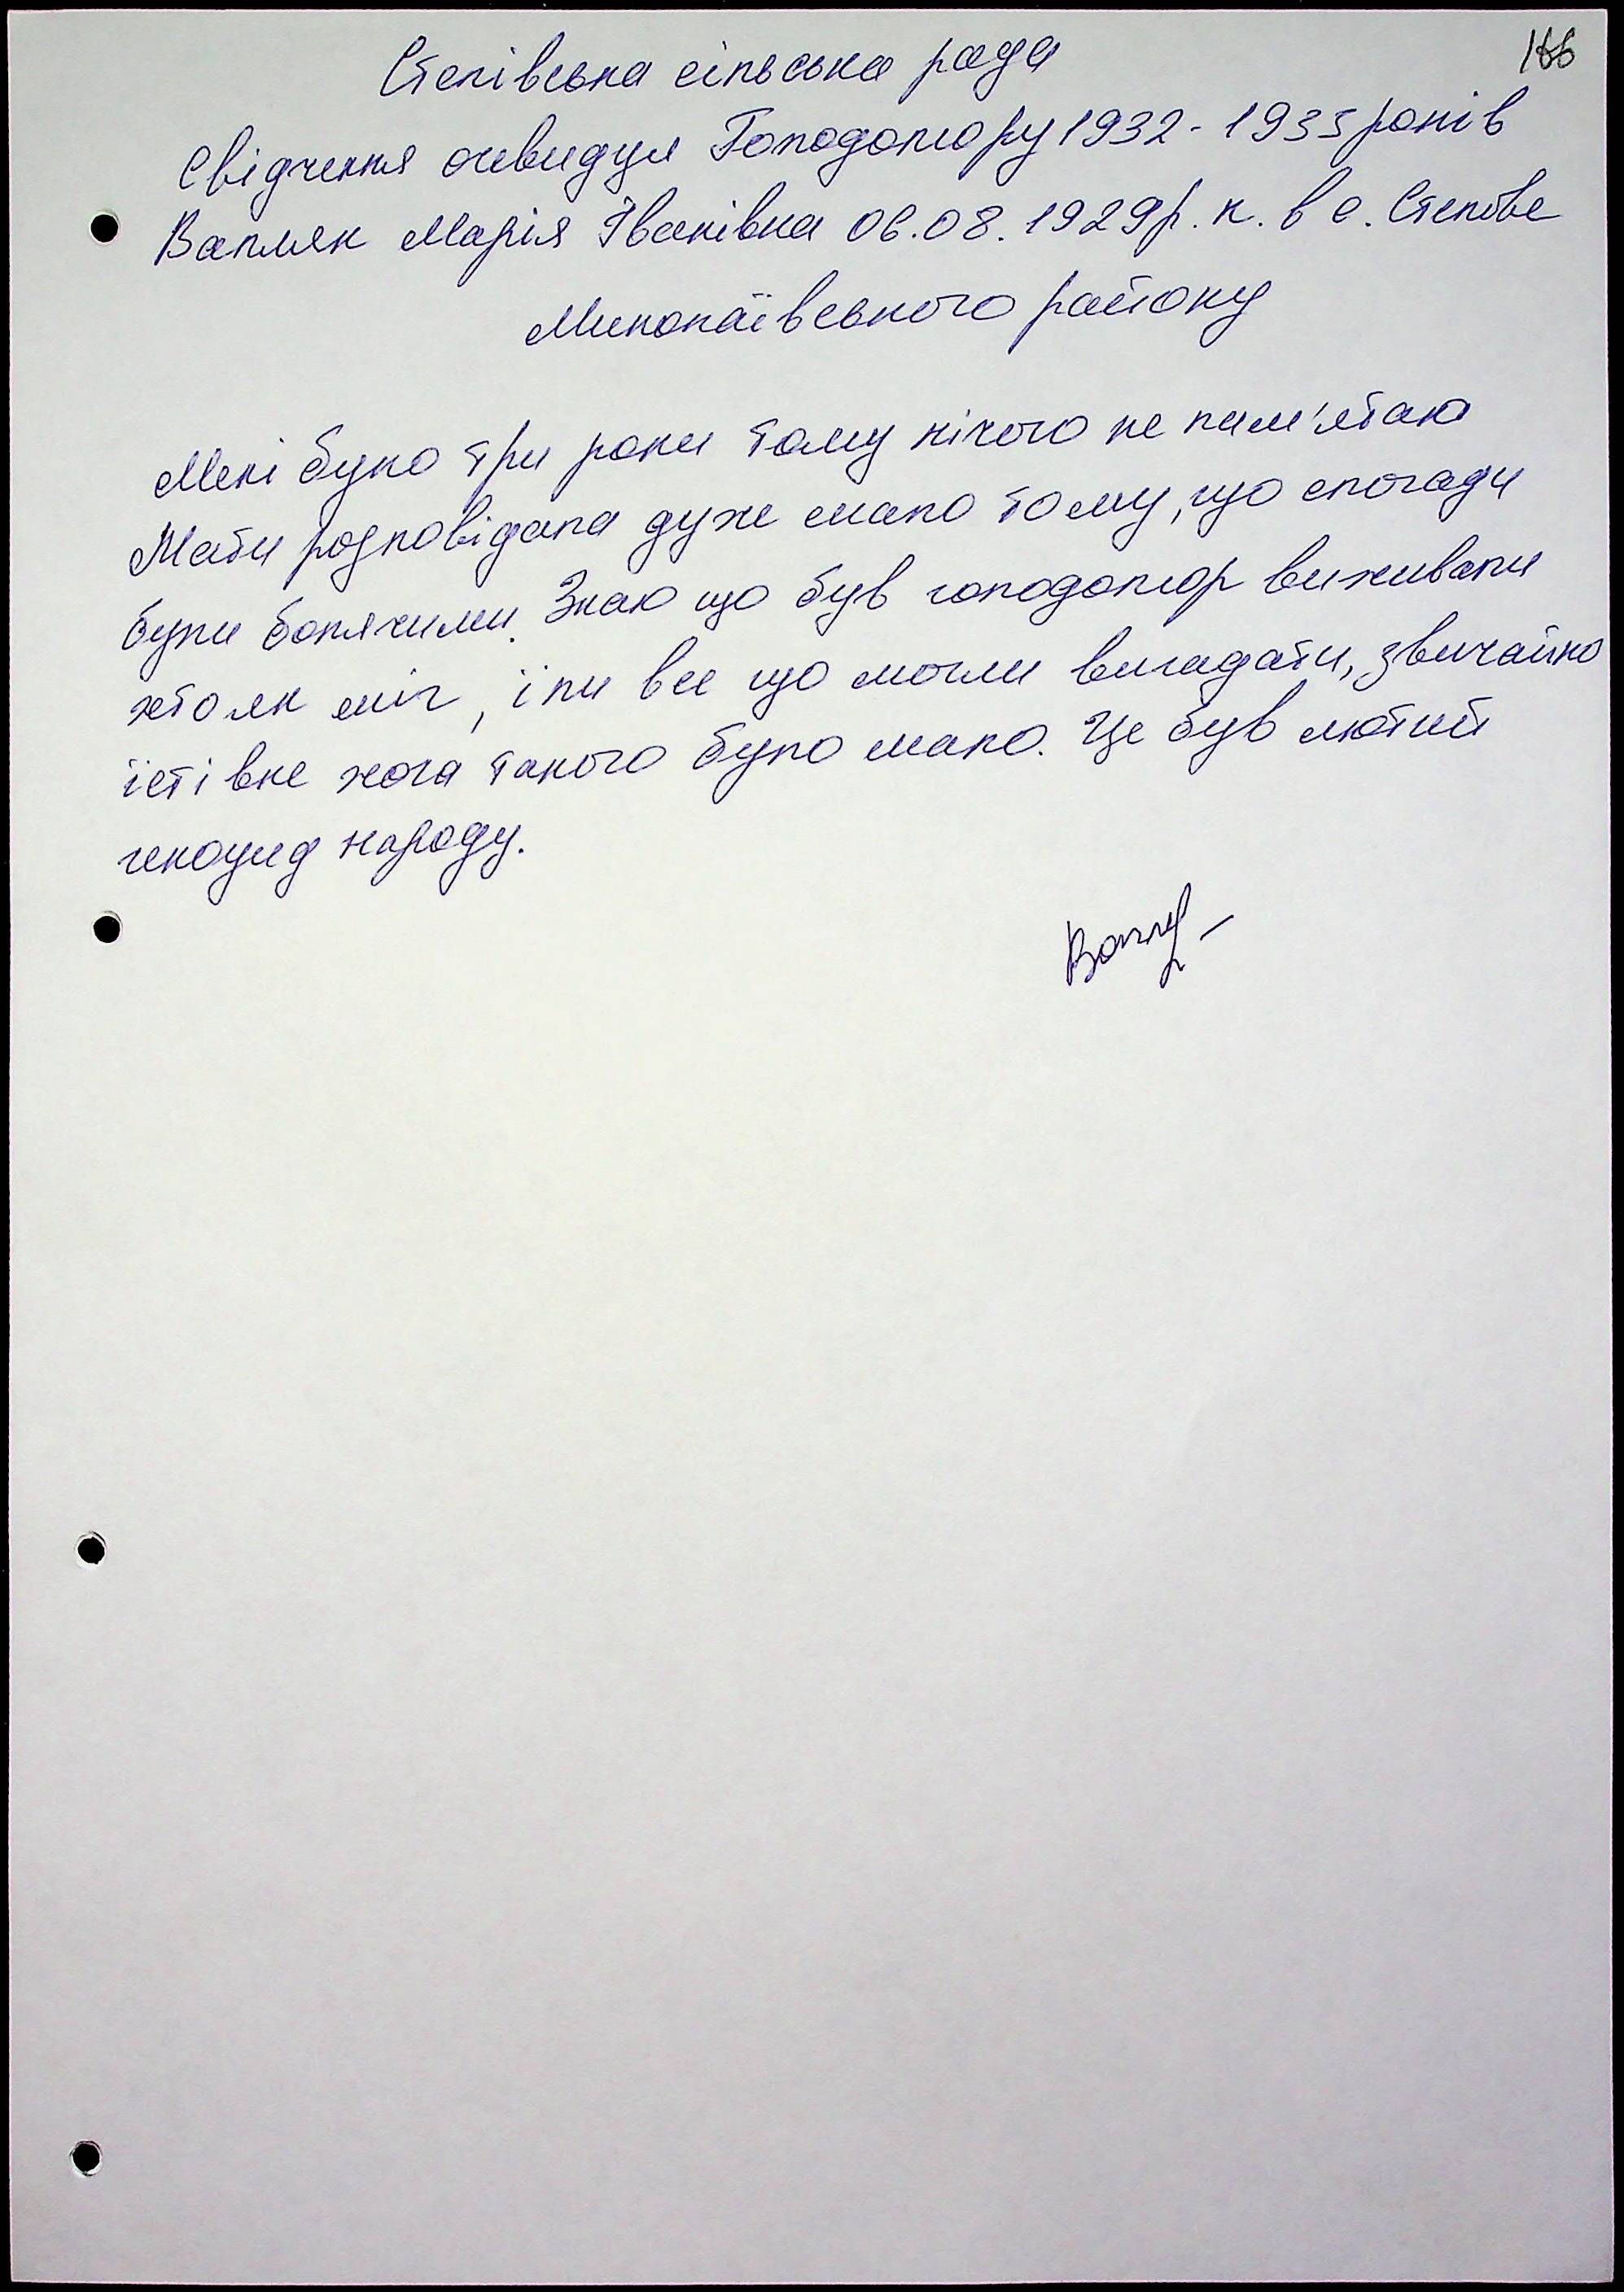 Степівська сільська рада
Свідчення очевидця Голодомору 1932-1933 років
Марія Іванівна 06.08.1929р.н. в с. Степове
Миколаївського району
Мені було три роки тому нічого не пам'ятаю
Мати розповідала дуже мало тому, що спогади
були болячими. Знаю що був голодомор виживали
хто як міг, їли все що могли вигадати, звичайно
їстівне хоча такого було мало. Це був лютий
геноцид народу.